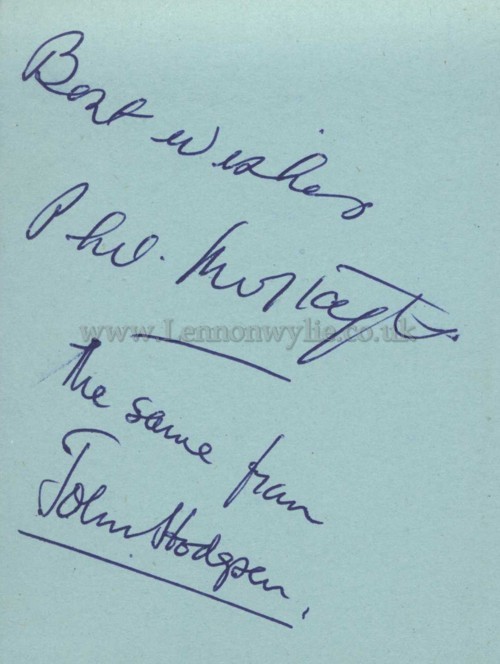 Best wishes
Phil.
www.Lennonwylie.co.uk
The same from
John Hodgsen.